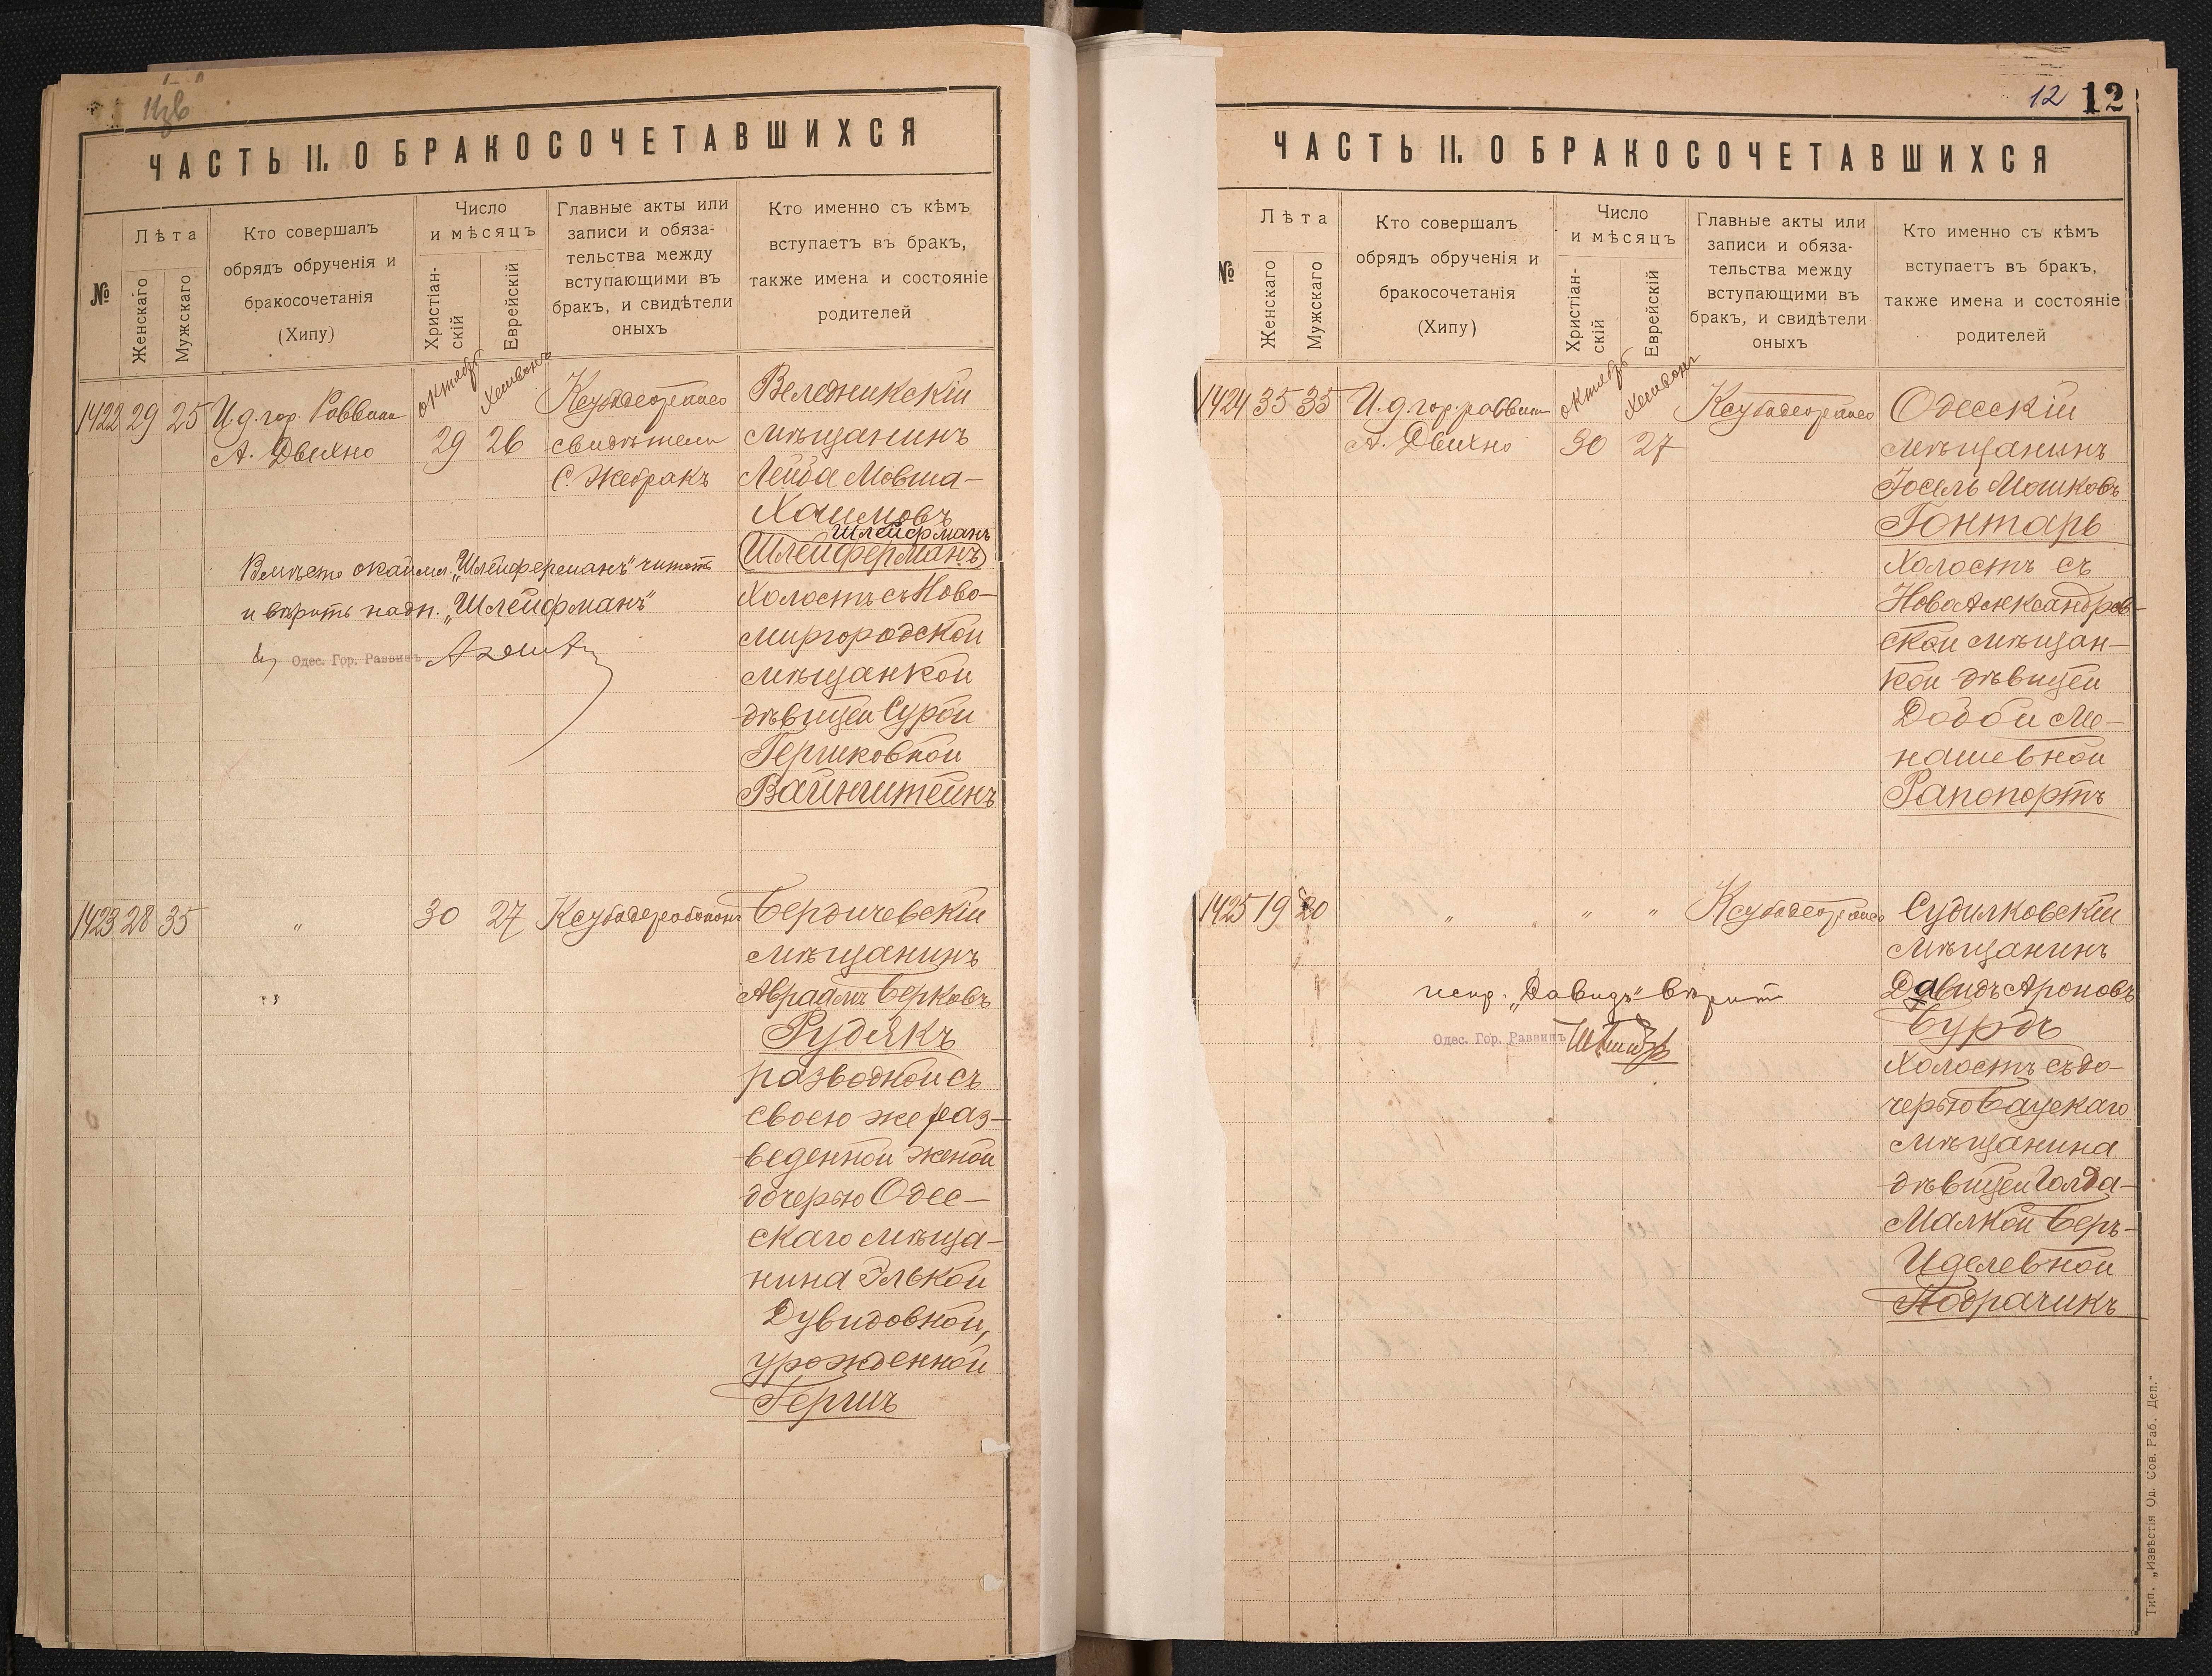 ЧАСТЬ II. О БРАКОСОЧЕТАВШИХСЯ
№
Лѣта
Женскаго
Мужскаго
Кто совершалъ
обрядъ обрученія и
бракосочетанія
(Хипу)
Число
и мѣсяцъ
Христіан-
скій
Еврейскій
Главные акты или
записи и обяза-
тельства между
вступающими въ
бракъ, и свидѣтели
оныхъ
Кто именно съ кѣмъ
вступаетъ въ бракъ,
также имена и состояніе
родителей
1422 29 25
И.д. гор. Раввина
А. Двихно
октябр
29
Хешвонъ
26
свидѣтели
С. Жебракъ
Веледникскій
мѣщанинъ
Лейба Мовша-
Хаимовъ
Шлейфманъ
Шлейферманъ
Холостъ съ Ново-
миргородской
мѣщанкой
дѣвицей Сурой
Гершковной
Вайнштейнъ
Вмѣсто окаймл. „Шлейферманъ" читать
и вѣрить надп. „Шлейфманъ"
Одес. Гор. Раввинъ
1423 28 35
„
30
27
Бердичевскій
мѣщанинъ
Авраамъ Берковъ
Рудякъ
разводной съ
своею же раз-
веденной женой
дочерью Одес-
скаго мѣща-
нина Элькой
Дувидовной,
урожденной
Гершъ
12 12
ЧАСТЬ II. О БРАКОСОЧЕТАВШИХСЯ
№
Лѣта
Женскаго
Мужскаго
Кто совершалъ
обрядъ обрученія и
бракосочетанія
(Хипу)
Число
и мѣсяцъ
Христіан-
скій
Еврейскій
Главные акты или
записи и обяза-
тельства между
вступающими въ
бракъ, и свидѣтели
оныхъ
Кто именно съ кѣмъ
вступаетъ въ бракъ,
также имена и состояніе
родителей
1424 35 35
И.д. гор. раввина
А. Двихно
октябр
30
Хешвонъ
27
Одесскій
мѣщанинъ
Іосель Мошковъ
Гонтарь
Холостъ съ
Новоалександров-
ской мѣщан-
кой дѣвицей
Добой Ме-
нашевной
Рапопортъ
1425 19 20
„
„
„
Судилковскій
мѣщанинъ
Давидъ Ароновъ
Бурдъ
Холостъ съ до-
черью Баускаго
мѣщанина
дѣвицей Голда-
Малкой Беръ-
Иделевной
Подрачикъ
испр. „Давидъ" вѣрить
Одес. Гор. Раввинъ
Тип. „Извѣстія Од. Сов. Раб. Деп."